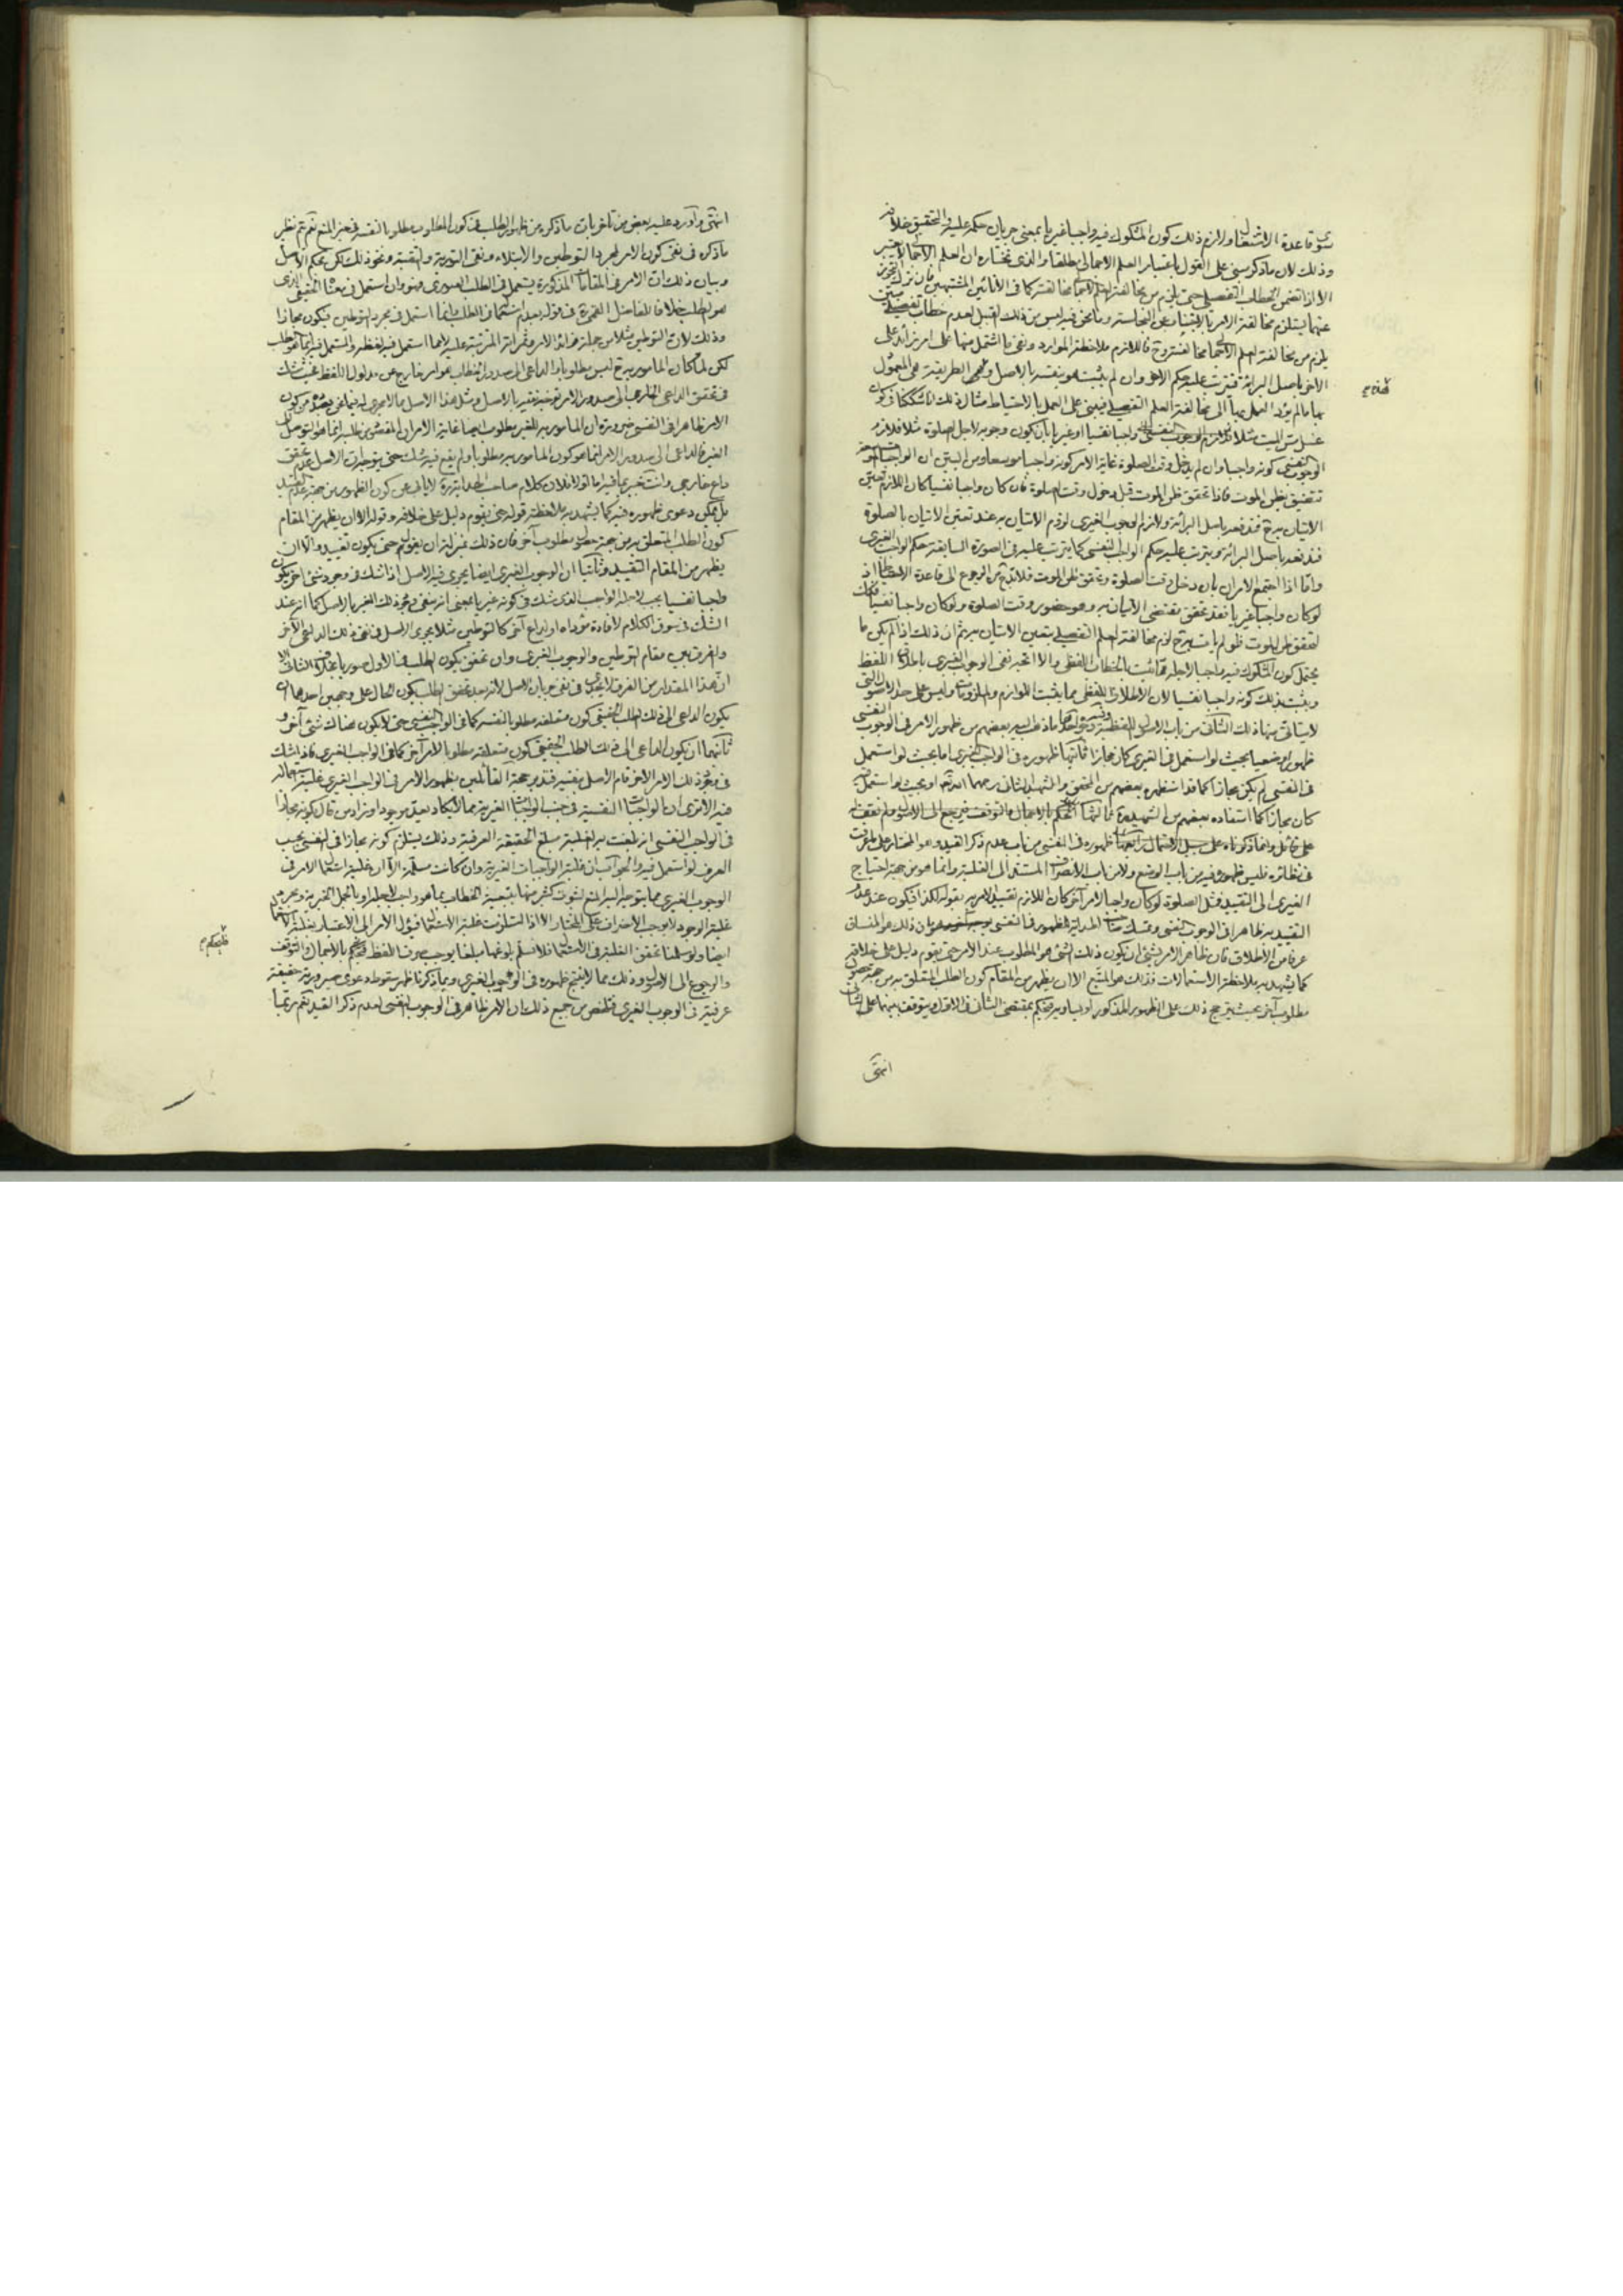 قاعدة الاشتغال ولازم ذلك كون المشكوك فيه واجبا غيريا بمعنى جريان حكمه عليه والتحقيق خلافه
وذلك لان ما ذكر مبنى على القول باعتبار العلم الاجمالى مطلقا والذى نختاره ان العلم الاجمالى لا يعتبر
الا اذا تضمن الخطاب التفصيلى حتى يلزم من مخالفته مخالفته كما فى الانائين المشتبهين فان
عنهما يستلزم مخالفة الامر بالاجتناب عن النجاسة وما نحن فيه ليس من ذلك القبيل لعدم خطاب تفصيلى
يلزم من مخالفة العلم الاجمالى مخالفته وح فاللازم ملاحظة الموارد ونفى ما اشتمل منها على امر زائد على
الاخر باصل البرائة فيترتب عليه حكم الاخر وان لم يثبت هو بنفسه بالاصل وهى الطريقة
ما لم يؤد العمل بها الى مخالفة العلم التفصيلى فيبنى على العمل بالاحتياط مثال ذلك اذا شككنا فى كون
غسل مس الميت مثلا واجبا نفسيا او غيريا بان يكون وجوبه لاجل الصلوة مثلا فلازم
الوجوب النفسى كونه واجبا وان لم يدخل وقت الصلوة غاية الامر كونه واجبا موسعا ومن البين ان الواجب
تتضيق بظن الموت فاذا تحقق ظن الموت قبل دخول وقت الصلوة فان كان واجبا نفسيا كان اللازم تعين
الاتيان به ح فندفعه باصل البرائة ولازم الوجوب الغيرى لزوم الاتيان به عند تعين الاتيان بالصلوة
فندفعه باصل البرائة ويترتب عليه حكم الواجب النفسى كما يترتب عليه فى الصورة السابقة حكم الواجب الغيرى
واما اذا اجتمع الامران بان دخل وقت الصلوة وتحقق ظن الموت فلابد من الرجوع الى قاعدة الاشتغال اذ
لو كان واجبا غيريا فقد تحقق مقتضى الاتيان به وهو حضور وقت الصلوة ولو كان واجبا نفسيا فكذلك
لتحقق ظن الموت فلو لم يات به ح لزم مخالفة العلم التفصيلى بتعين الاتيان به ثم ان ذلك اذا لم يكن ما
يحتمل كون المشكوك فيه واجبا لاجله مما ثبت بالخطاب اللفظى والا اتجه نفى الوجوب الغيرى باطلاق اللفظ
ويثبت بذلك كونه واجبا نفسيا لان الاطلاق اللفظى مما يثبت اللوازم والملزومات وليس على حد الاصول التى
ظهوره وضعيا بحيث لو استعمل فى الغيرى كان مجازا ثانيها ظهوره فى الواجب الغيرى اما بحيث لو استعمل
فى النفسى لم يكن مجازا كما قد استظهره بعضهم من المحقق والشهيد الثانى رحمهما الله او بحيث لو استعمل فيه
كان مجازا كما استفاده بعضهم من الشهيد ثالثها الحكم بالاجمال والتوقف فيرجع الى الاصول ولم نقف له
على قائل وانما ذكرناه على سبيل الاحتمال رابعها ظهوره فى النفسى من باب عدم ذكر القيد وهو المختار على ما عرفت
فى نظائره فليس ظهوره فيه من باب الوضع ولا من باب الانصراف المستند الى الغلبة وانما هو من جهة احتياج
الغيرى الى التقييد فمثل الصلوة لو كان واجبا لامر آخر كان اللازم تقييد الامر به بقوله لكذا فيكون عند عدم
التقييد به ظاهرا فى الوجوب النفسى
عرفا من الاطلاق فان ظاهر الامر بشئ ان يكون ذلك الشئ هو المطلوب عند الامر حتى يقوم دليل على خلافه
كما يشهد به ملاحظة الاستعمالات فذلك هو المتبع الا ان يظهر من المقام كون الطلب المتعلق به من جهة حصول
مطلوب آخر بحيث يترجح ذلك على الظهور المذكور او يساويه فيحكم بمقتضى الثانى فى الاول ويتوقف بينهما على الثانى
انتهى
انتهى واورد عليه بعض من تاخر بان ما ذكره من ظهور الطلب فى كون المطلوب مطلوبا لنفسه فى حيز المنع نعم يتم نظير
ما ذكره فى نفى كون الامر لمجرد التوطين والابتلاء ونفى التورية والتقية ونحو ذلك لكن بحكم الاصل
وبيان ذلك ان الامر فى المقامات المذكورة يستعمل فى الطلب الصورى وهو وان استعمل فى معناه الحقيقى الذى
هو الطلب خلافا للفاضل القمى فى قوله بعدم استعماله فى الطلب وانما استعمل فى مجرد التوطين فيكون مجازا
وذلك لان التوطين مثلا من جملة فوائد الامر وثمراته المترتبة عليه لا مما استعمل فيه لفظه والمستعمل فيه انما هو الطلب
لكن لما كان المامور به ح ليس مطلوبا والداعى الى صدور الخطاب هو امر خارج عن مدلول اللفظ فحيث شك
فى تحقق الداعى الخارجى الى صدور الامر
الامر ظاهرا فى النفسى ضرورة ان المامور به للغير مطلوب ايضا غاية الامر ان المقصود من طلبه انما هو التوصل الى
الغير فالداعى الى صدور الامر انما هو كون المامور به مطلوبا ولم يقع فيه شك حتى يتوجه ان الاصل عدم تحقق
داع خارجى وانت خبير بما فيه اما اولا فلان كلام صاحب الهداية لا يابى عن كون الظهور من جهة عدم التقييد
بل يمكن دعوى ظهوره فيه كما يشهد به ملاحظة قوله حتى يقوم دليل على خلافه وقوله الا ان يظهر من المقام
كون الطلب المتعلق به من جهة حصول مطلوب آخر فان ذلك بمنزلة ان يقول حتى يكون تقييد والا ان
يظهر من المقام التقييد وثانيا ان الوجوب الغيرى ايضا يجرى فيه الاصل اذا شك فى وجود شئ آخر يكون
واجبا نفسيا يجب لاجله الواجب الذى شك فى كونه غيريا بمعنى انه ينفى وجود ذلك الغير بالاصل كما انه عند
الشك فى سوق الكلام لافادة مؤداه او لداع آخر كالتوطين مثلا يجرى الاصل فى نفى ذلك الداعى الآخر
والفرق بين مقام التوطين والوجوب الغيرى وان تحقق بكون الطلب فى الاول صوريا بخلافه فى الثانى الا
ان هذا المقدار من الفرق لا يجدى فى نفى جريان الاصل لانه بعد تحقق الطلب يكون الحال على وجهين احدهما ان
يكون الداعى الى ذلك الطلب الحقيقى كون متعلقه مطلوبا لنفسه كما فى الواجب النفسى حتى لا يكون هناك شئ آخر و
ثانيهما ان يكون الداعى الى ذلك الطلب الحقيقى كون متعلقه مطلوبا لامر آخر كما فى الواجب الغيرى فاذا شك
فى وجود ذلك الامر الاخر قام الاصل بنفيه فتدبر حجة القائلين بظهور الامر فى الواجب الغيرى غلبة استعماله
فيه الا ترى ان الواجبات النفسية فى جنب الواجبات الغيرية مما لا يكاد يعد موجودا وزاد من قال بكونه مجازا
فى الواجب النفسى انه بلغت به الغلبة مبلغ الحقيقة العرفية وذلك يستلزم كونه مجازا فى النفسى بحسب
العرف لو استعمل فيه والجواب ان غلبة الواجبات الغيرية وان كانت مسلمة الا ان غلبة استعمال الامر فى
الوجوب الغيرى مما يتوجه اليه المنع لثبوت كثير منها بتبعية الخطاب بما هو واجب لاجله او بالجمل الخبرية ومجرد
غلبة الوجود لا يوجب الانصراف على المختار الا اذا استلزمت غلبة الاستعمال فيؤل الامر الى الاعتبار بغلبة الاستعمال
ايضا ولو سلمنا تحقق الغلبة فى الاستعمال فلا نسلم بلوغها مبلغا يوجب صرف اللفظ فيحكم بالاجمال والتوقف
والرجوع الى الاصول وذلك مما لا ينتج ظهوره فى الوجوب الغيرى وبما ذكرنا ظهر سقوط دعوى صيرورته حقيقة
عرفية فى الوجوب الغيرى فتلخص من جميع ذلك ان الامر ظاهر فى الوجوب النفسى لعدم ذكر القيد ثم ربما